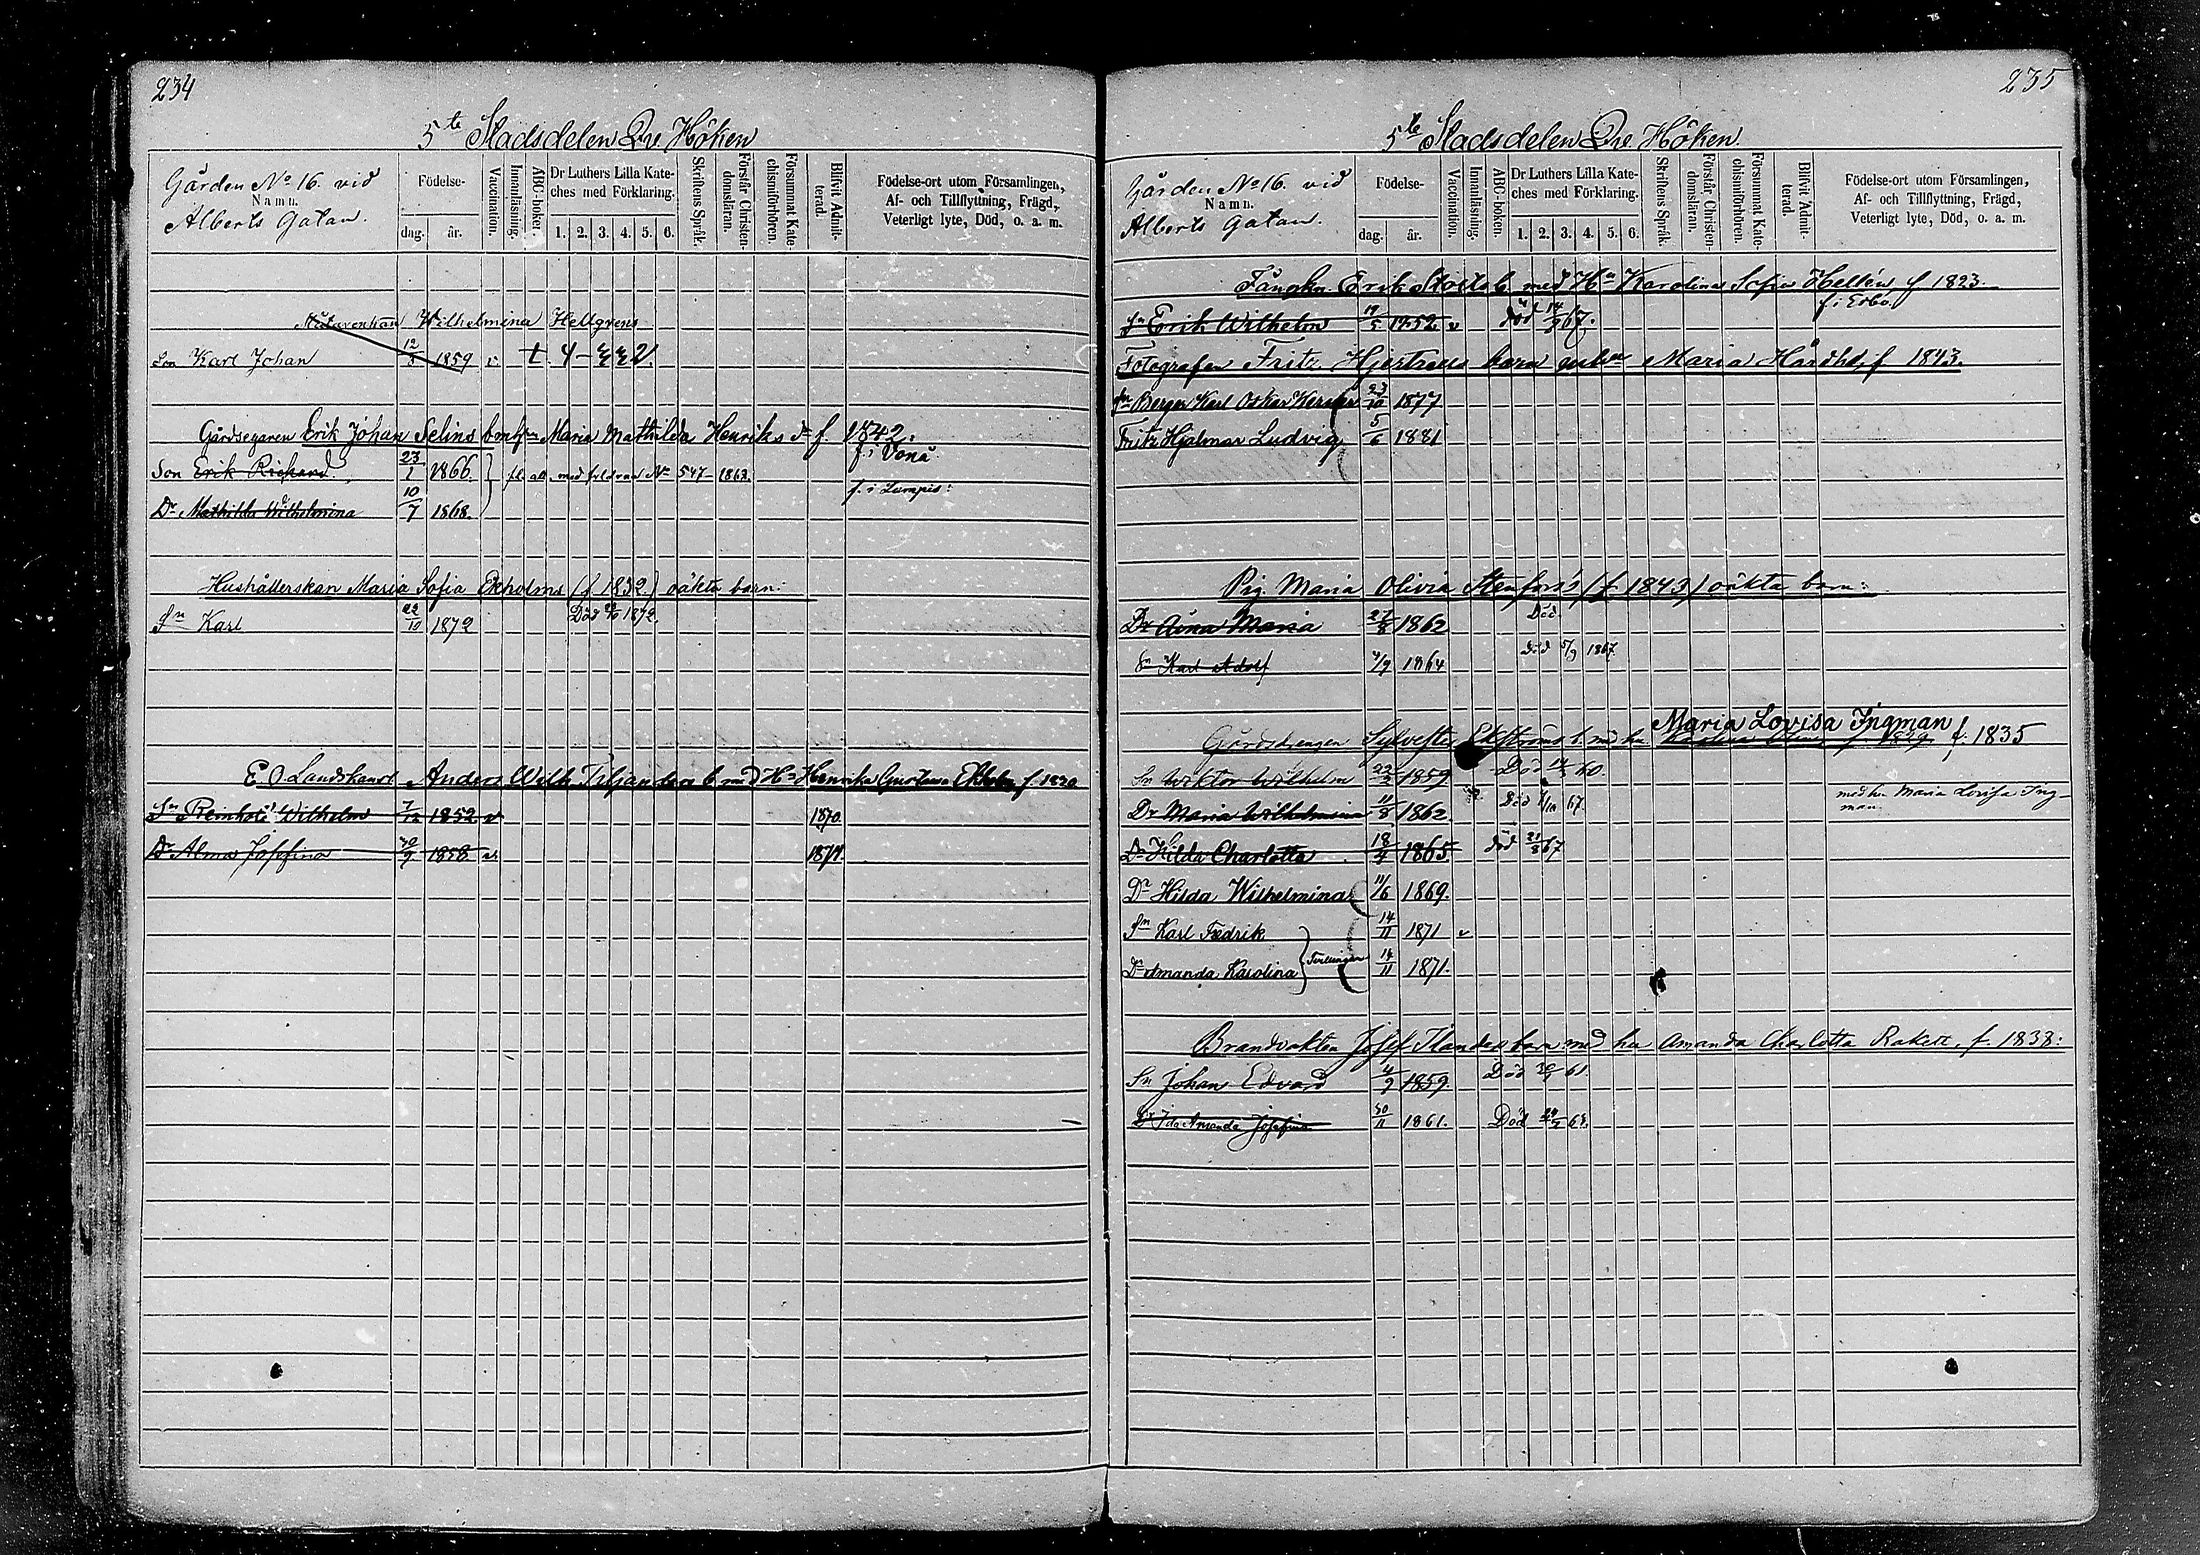 234
5te Stadsdelen Qv. Höken
Gården No 16. vid
Namn.
Alberts Gatan.
Födelse-
dag. år.
Vaccination.
Innanläsning.
ABC-boken
Dr Luthers Lilla Kate-
ches med Förklaring.
1. 2. 3. 4. 5. 6.
Skriftens Språk.
Förstår Christen-
domsläran.
Försummat Kate-
chismiförhören.
Blifvit Admit-
terad.
Födelse-ort utom Församlingen,
Af- och Tillflyttning, Frägd,
Veterligt lyte, Död, o. a. m.
Wilhelmina Hellgrens
Son Karl Johan 12/8 1859 v.
Gårdsegaren Erik Johan Selins b m hu Maria Mathilda Henriks dr f. 1842.
f. i Vonå
Son Erik Richard 23/1 1866. med No 547 - 1868.
f. i Lumpis:
Dr Mathilda Wilhelmina 10/7 1868.
Hushållerskan Maria Sofia Ekholms (f 1832) oäkta barn:
Sn Karl 22/10 1872 Död 1872.
E. O. Landskansl. Anders Wilh. Tiljanders b. med Ha Henrika Gustava Ekholm f. 1820
Sn Reinhold Wilhelm 7/12 1852 v 1870.
Dr Alma Josefina 1858
235
5te Stadsdelen Qv. Höken.
Gården No 16. vid
Namn.
Alberts Gatan.
Födelse-
dag. år.
Vaccination.
Innanläsning.
ABC-boken.
Dr Luthers Lilla Kate-
ches med Förklaring.
1. 2. 3. 4. 5. 6.
Skriftens Språk.
Förstår Christen-
domsläran.
Försummat Kate-
chismiförhören.
Blifvit Admit-
terad.
Födelse-ort utom Församlingen,
Af- och Tillflyttning, Frägd,
Veterligt lyte, Död, o. a. m.
Erik b. med Ha Karolina Sofia Hellén f 1823.
Sn Erik Wilhelm 1852 v död 67.
Fotografen Fritz Hjertzells barn med Maria Hårdh f 1843.
Sn Berger Karl Oskar Werner 23/10 1877
Fritz Hjalmar Ludvig 5/6 1881
Pig. Maria Olivia Stenfors's (f 1843) oäkta barn:
Dr Aina Maria 27/8 1862 Död.
Sn Karl Adolf 4/9 1864 död 5/9 1867.
Maria Lovisa Ingman
Gårdsdrengen Sylvester Ekströms b. med hu f. 1835
Sn Wiktor Wilhelm 1859 Död 60.
med hu Maria Lovisa Ing-
man.
Dr Maria Wilhelmina 11/8 1862. Död 67.
Dr Hilda Charlotta 18/4 1865 död 21/8 67
Dr Hilda Wilhelmina 11/6 1869.
Sn Karl Fredrik 14/11 1871 v
Dr Amanda Karolina Tvillingar 14/11 1871.
Brandvakten Josef Ilanders barn med hu Amanda Charlotta f. 1838:
Sn Johan Edvard 4/9 1859 Död 61.
Dr Ida Amanda Josefina 30/11 1861. Död